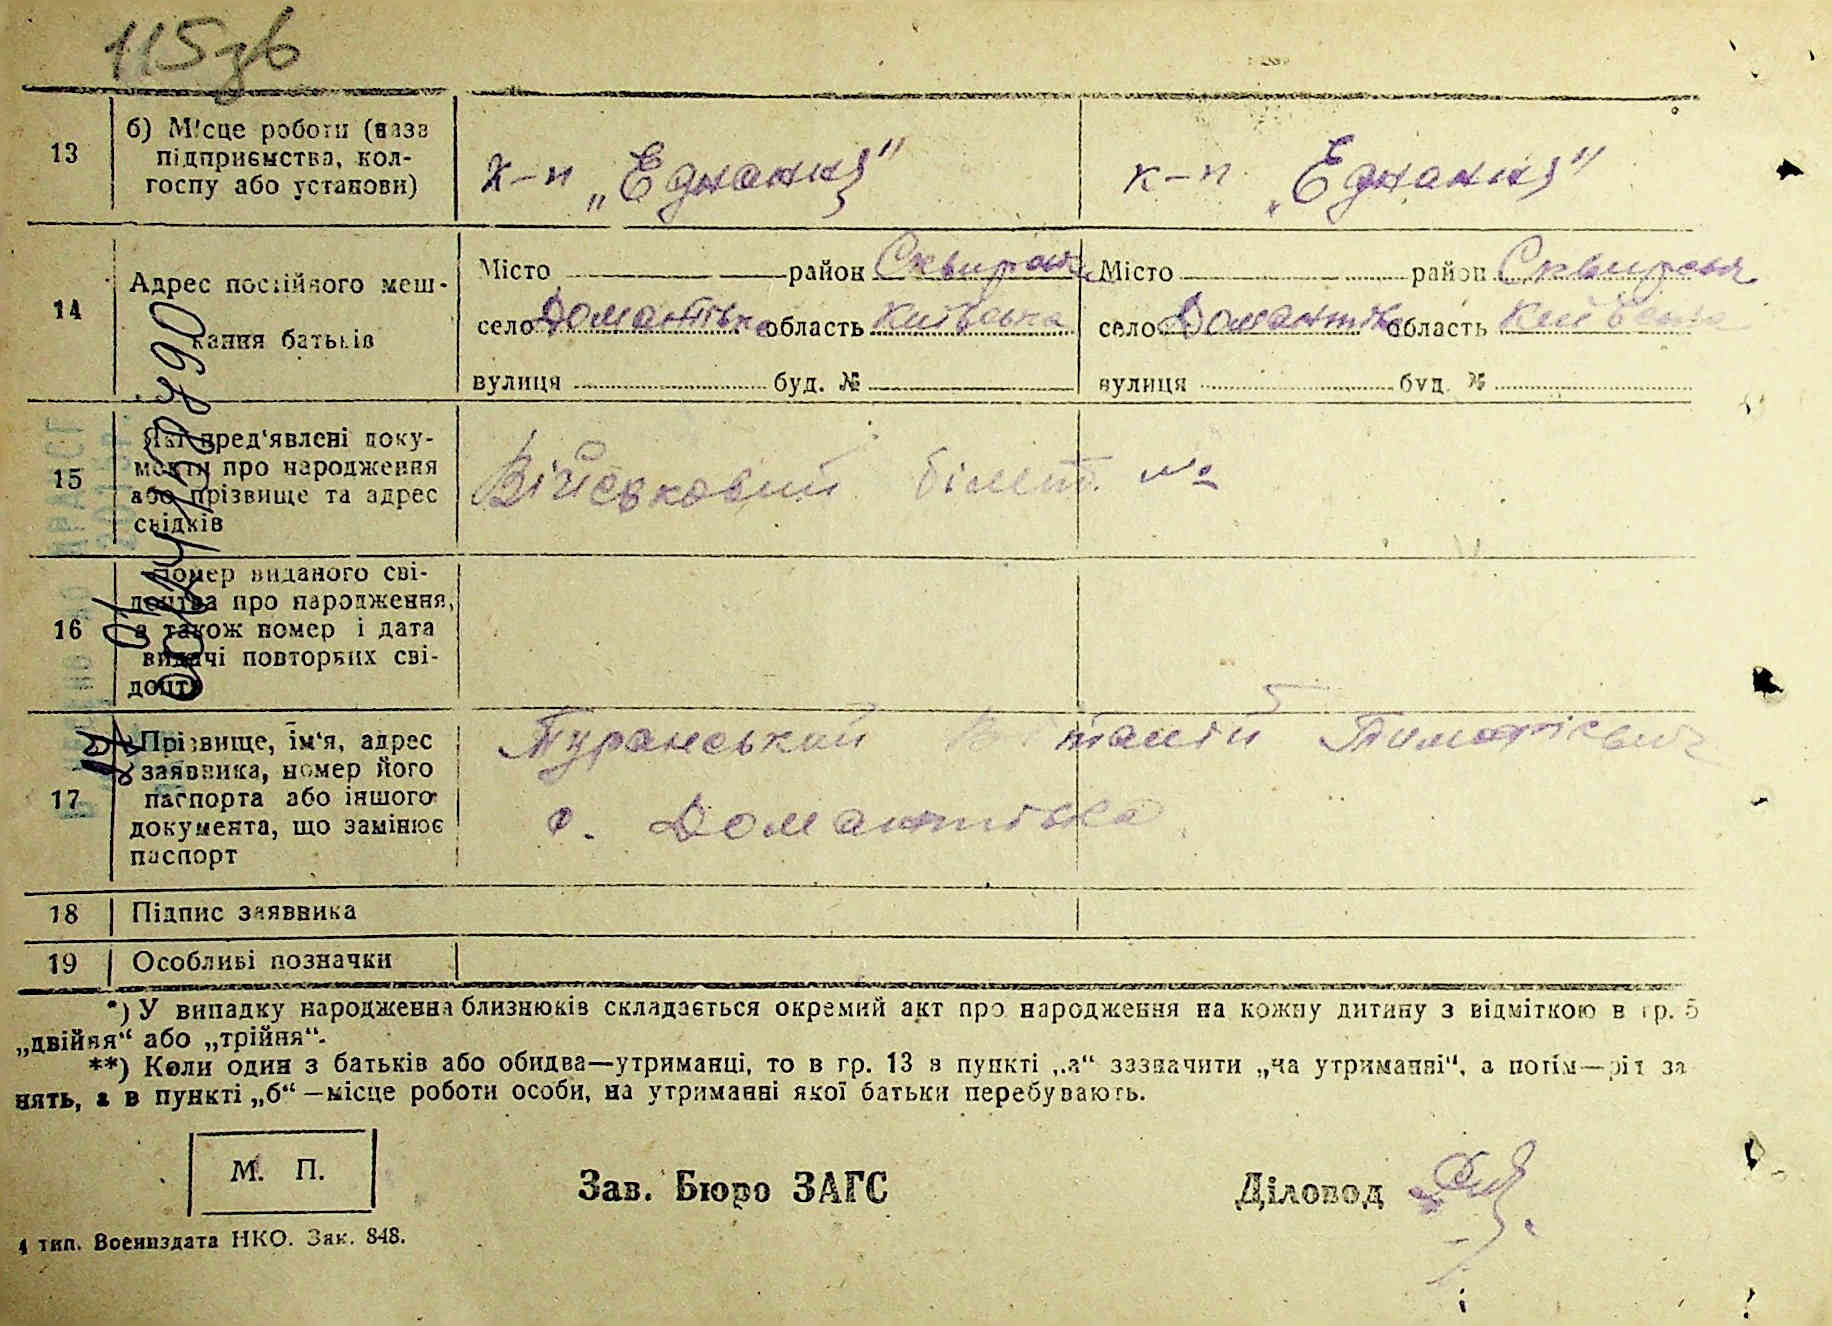 115зв
13
б) Місце роботи (назва
підприємства, кол-
госпу або установи)
к-п „Еднання"
к-п „Еднання"
14
Адрес постійного меш-
кання батьків
Місто район Сквирськ
село Домантівка область Київська
вулиця буд. №
Місто район Сквирськ
село Домантівка область Київська
вулиця буд. №
15
Які пред'явлені доку-
менти про народження
або прізвище та адрес
свідків
Військовий білет №
16
Номер виданого сві-
доцтва про народження,
а також номер і дата
видачі повторних сві-
доцтв
17
Прізвище, ім'я, адрес
заявника, номер його
паспорта або іншого
документа, що замінює
паспорт
Туранський Віталій Тимофієвич
с. Домантівка
18
Підпис заявника
19
Особливі позначки
*) У випадку народження близнюків складається окремий акт про народження на кожну дитину з відміткою в гр. 5
„двійня“ або „трійня“.
**) Коли один з батьків або обидва—утриманці, то в гр. 13 в пункті „а“ зазначити „на утриманні“, а потім—рід за
нять, а в пункті „б“ —місце роботи особи, на утриманні якої батьки перебувають.
М. П.
Зав. Бюро ЗАГС
Діловод
4 тип. Воениздата НКО. Зак. 848.